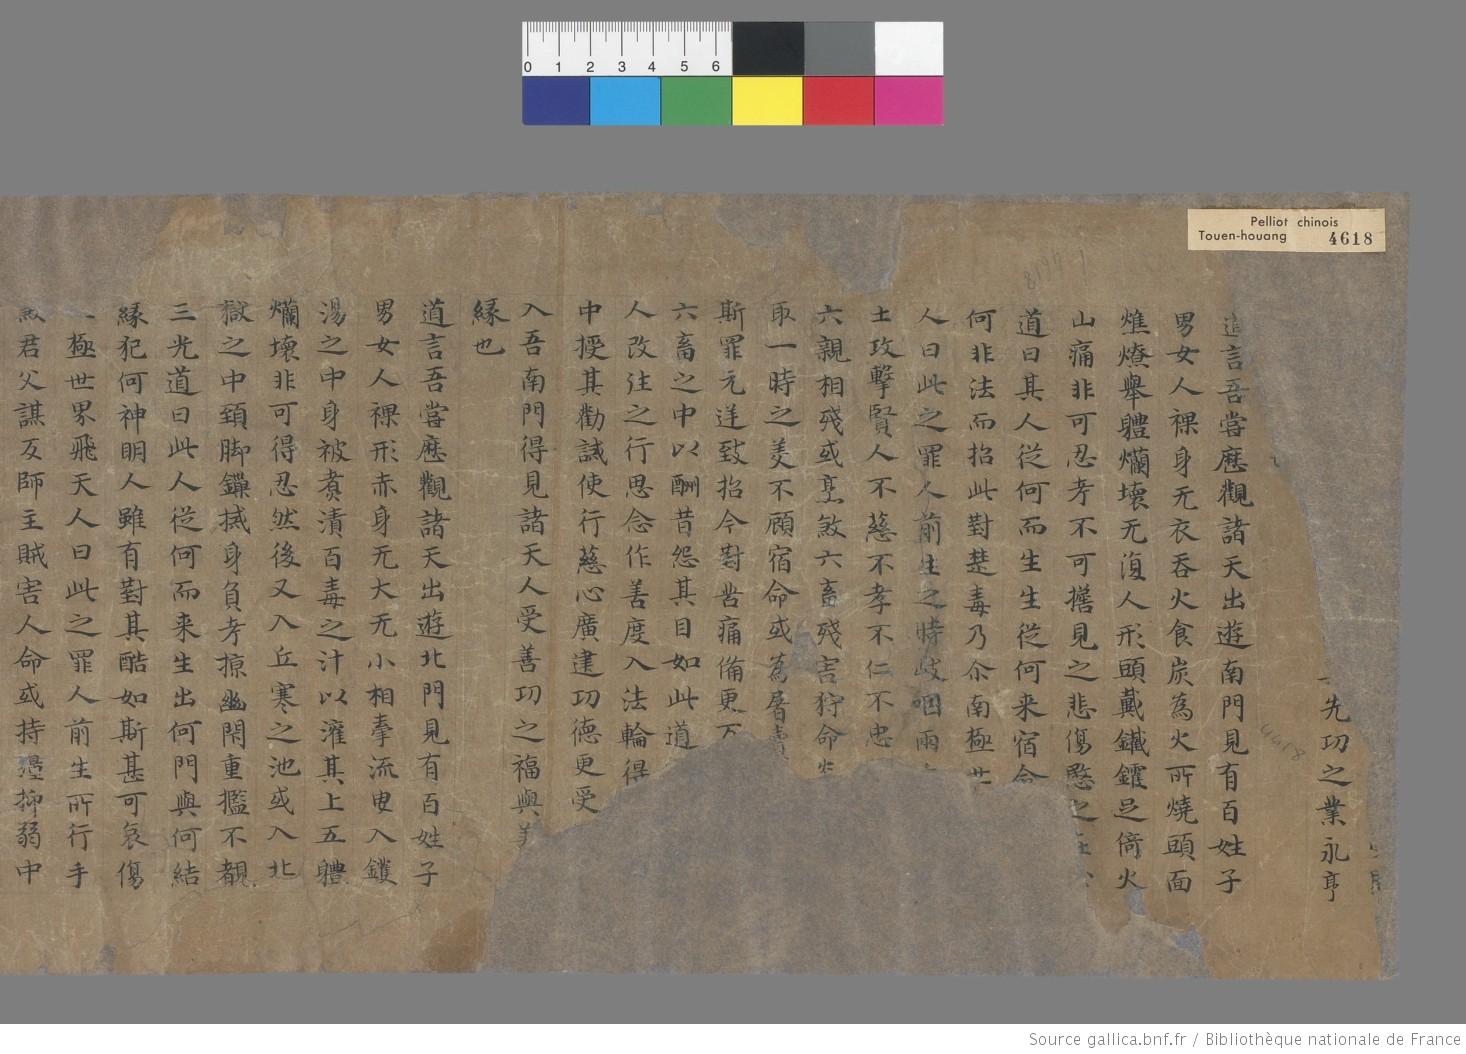 0 1 2 3 4 5 6
Pelliot chinois
Touen-houang 4618
4618
先功之業永亨
道言吾嘗歷觀諸天出遊南門見有百姓子
男女人裸身无衣吞火食炭為火所燒頭面
燋燎舉體爛壞无復人形頭戴鐵鑊足倚火
山痛非可忍考不可擔見之悲傷愍之在
道曰其人從何而生生從何来宿命
何非法而招此對楚毒乃尒南極世
人曰此之罪人前生之時
土攻擊賢人不慈不孝不仁不忠
六親相殘或烹煞六畜殘害狩命
取一時之美不顧宿命或為屠
斯罪元違致招今對苦痛備更
六畜之中以酬昔怨其目如此道
人改往之行思念作善度入法輪得
中授其勸誡使行慈心廣建功德更受
入吾南門得見諸天人受善功之福與
緣也
道言吾嘗歷觀諸天出遊北門見有百姓子
男女人裸形赤身无大无小相牽流曳入鑊
湯之中身被煑漬百毒之汁以灌其上五體
爛壞非可得忍然後又入丘寒之池或入北
獄之中頸脚鏁械身負考掠幽閇重檻不覩
三光道曰此人從何而来生出何門與何結
緣犯何神明人雖有對其酷如斯甚可哀傷
極世界飛天人曰此之罪人前生所行手
煞君父謀反師主賊害人命或持彊抑弱中
Source gallica.bnf.fr / Bibliothèque nationale de France